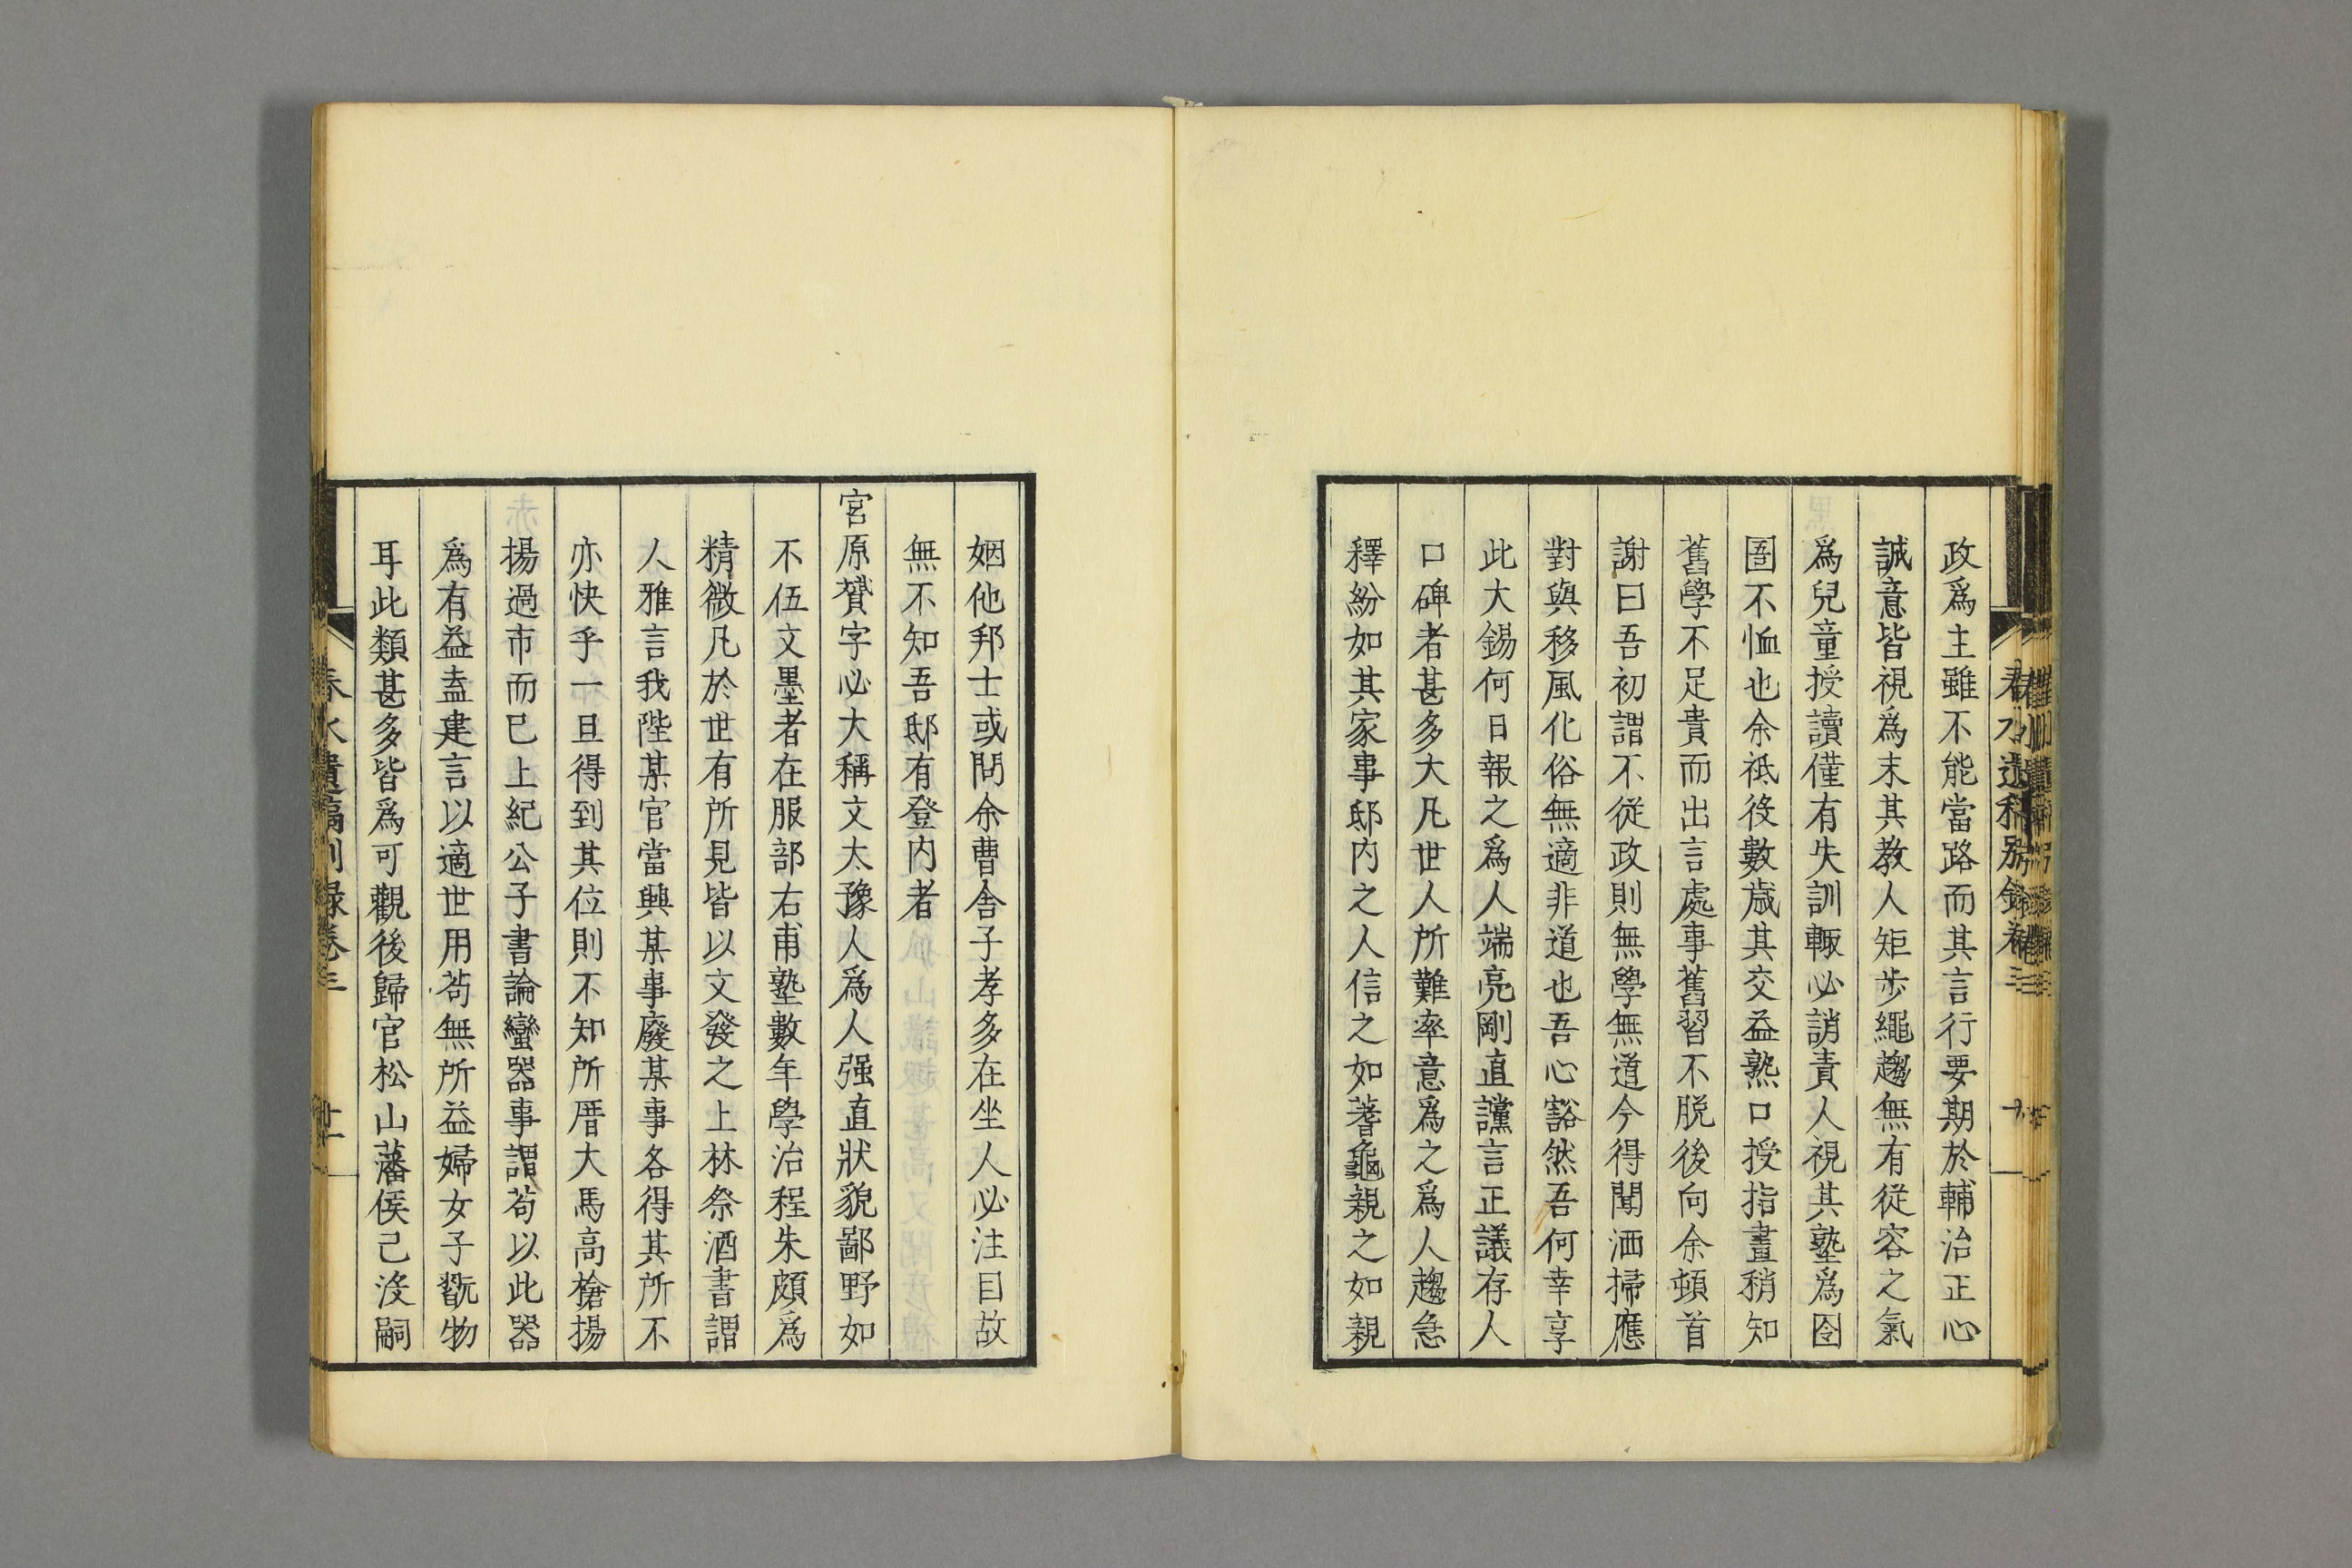 政爲主雖不能當路而其言行要期於輔治正心
誠意皆視爲末其教人矩歩繩趨無有從容之氣
爲兒童授讀僅有失訓輙必誚責人視其塾爲囹
圄不恤也余祗役數歳其交益熟口授指畫稍知
舊學不足貴而出言處事舊習不脱後向余頓首
謝曰吾初謂不從政則無學無道今得聞洒掃應
對與移風化俗無適非道也吾心豁然吾何幸享
此大錫何日報之爲人端亮剛直讜言正議存人
口碑者甚多大凡世人所難率意爲之爲人趨急
釋紛如其家事邸内之人信之如蓍龜親之如親
姻他邦士或問余曹舎子孝多在坐人必注目故
無不知吾邸有登内者
宮原贇字必大稱文太豫人爲人强直狀貌鄙野如
不伍文墨者在服部右甫塾數年學治程朱頗爲
精微凡於世有所見皆以文發之上林祭酒書謂
人雅言我陛某官當興某事廢某事各得其所不
亦快乎一旦得到其位則不知所厝大馬高槍揚
揚過市而已上紀公子書論蠻器事謂苟以此器
爲有益盍建言以適世用苟無所益婦女子翫物
耳此類甚多皆爲可觀後歸官松山藩侯已沒嗣
春水遺稿別録卷三